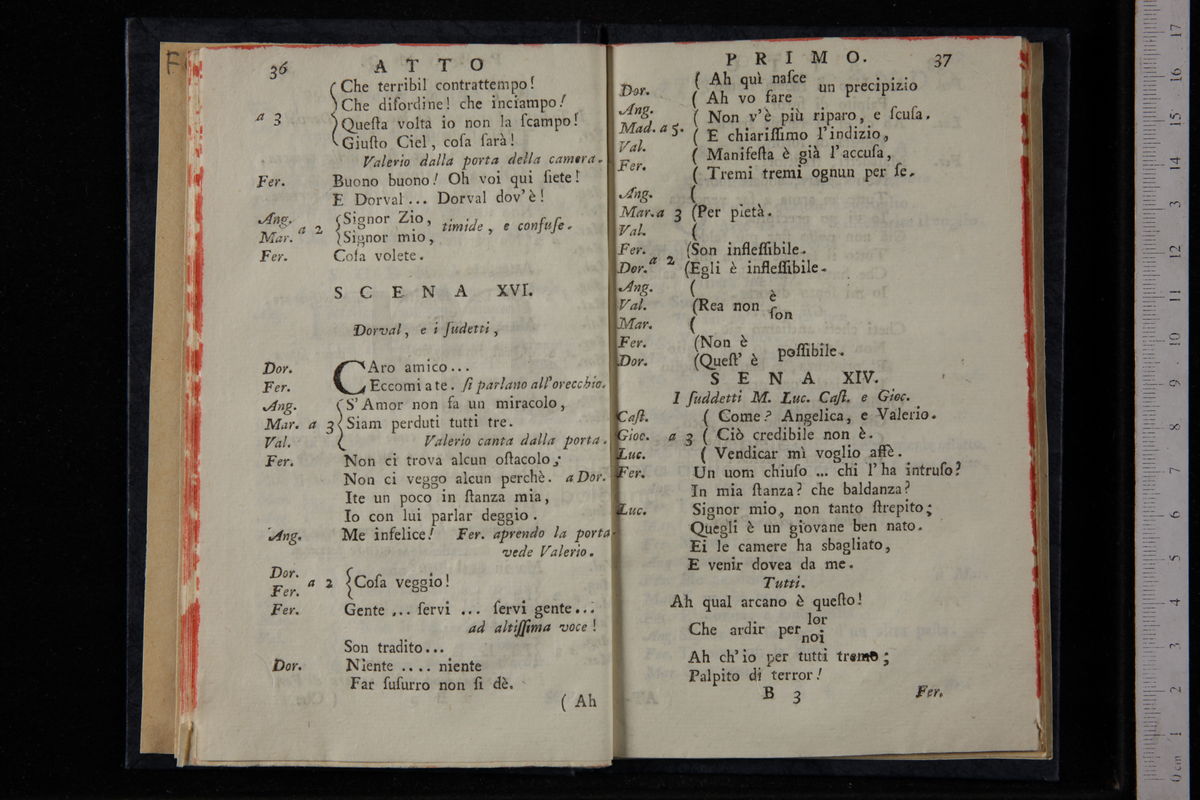 F
36 ATTO
Che terribil contrattempo!
Che diſordine! che inciampo!
a 3 Queſta volta io non la ſcampo!
Giuſto Ciel, coſa ſarà!
Valerio dalla porta della camera.
Fer. Buono buono! Oh voi qui ſiete!
E Dorval... Dorval dov'è!
Ang. {Signor Zio,
a 2 timide, e confuſe.
Mar. {Signor mio,
Fer. Coſa volete.
SCENA XVI.
Dorval, e i ſudetti,
Dor. CAro amico...
Fer. Eccomi ate. ſi parlano all'orecchio.
Ang. (S'Amor non fa un miracolo,
Mar. a 3 {Siam perduti tutti tre.
Val. ( Valerio canta dalla porta.
Fer. Non ci trova alcun oſtacolo;
Non ci veggo alcun perchè. a Dor.
Ite un poco in ſtanza mia,
Io con lui parlar deggio.
Ang. Me infelice! Fer. aprendo la porta
vede Valerio.
Dor.
a 2 {Coſa veggio!
Fer.
Fer. Gente ... ſervi ... ſervi gente...
ad altiſſima voce!
Son tradito...
Dor. Niente .... niente
Far ſuſurro non ſi dè.
( Ah
PRIMO. 37
Dor. ( Ah quì naſce
un precipizio
( Ah vo fare
Ang. ( Non v'è più riparo, e ſcuſa.
Mad. a 5. ( E chiariſſimo l'indizio,
Val. ( Manifeſta è già l'accuſa,
Fer. ( Tremi tremi ognun per ſe.
Ang. (
Mar. a 3 (Per pietà.
Val. (
Fer. (Son infleſſibile.
a 2
Dor. (Egli è infleſſibile.
Ang. (
Val. (Rea non è
ſon
Mar. (
Fer. (Non è
poſſibile.
Dor. (Queſt' è
SENA XIV.
I ſuddetti M. Luc. Caſt. e Gioc.
Caſt. ( Come? Angelica, e Valerio.
Gioc. a 3 ( Ciò credibile non è.
Luc. ( Vendicar mì voglio affè.
Fer. Un uom chiuſo ... chi l'ha intruſo?
In mia ſtanza? che baldanza?
Luc. Signor mio, non tanto ſtrepito;
Quegli è un giovane ben nato.
Ei le camere ha sbagliato,
E venir dovea da me.
Tutti.
Ah qual arcano è queſto!
lor
Che ardir per
noi
Ah ch'io per tutti tremo;
Palpito di terror!
B 3 Fer.
0 cm 1 2 3 4 5 6 7 8 9 10 11 12 13 14 15 16 17